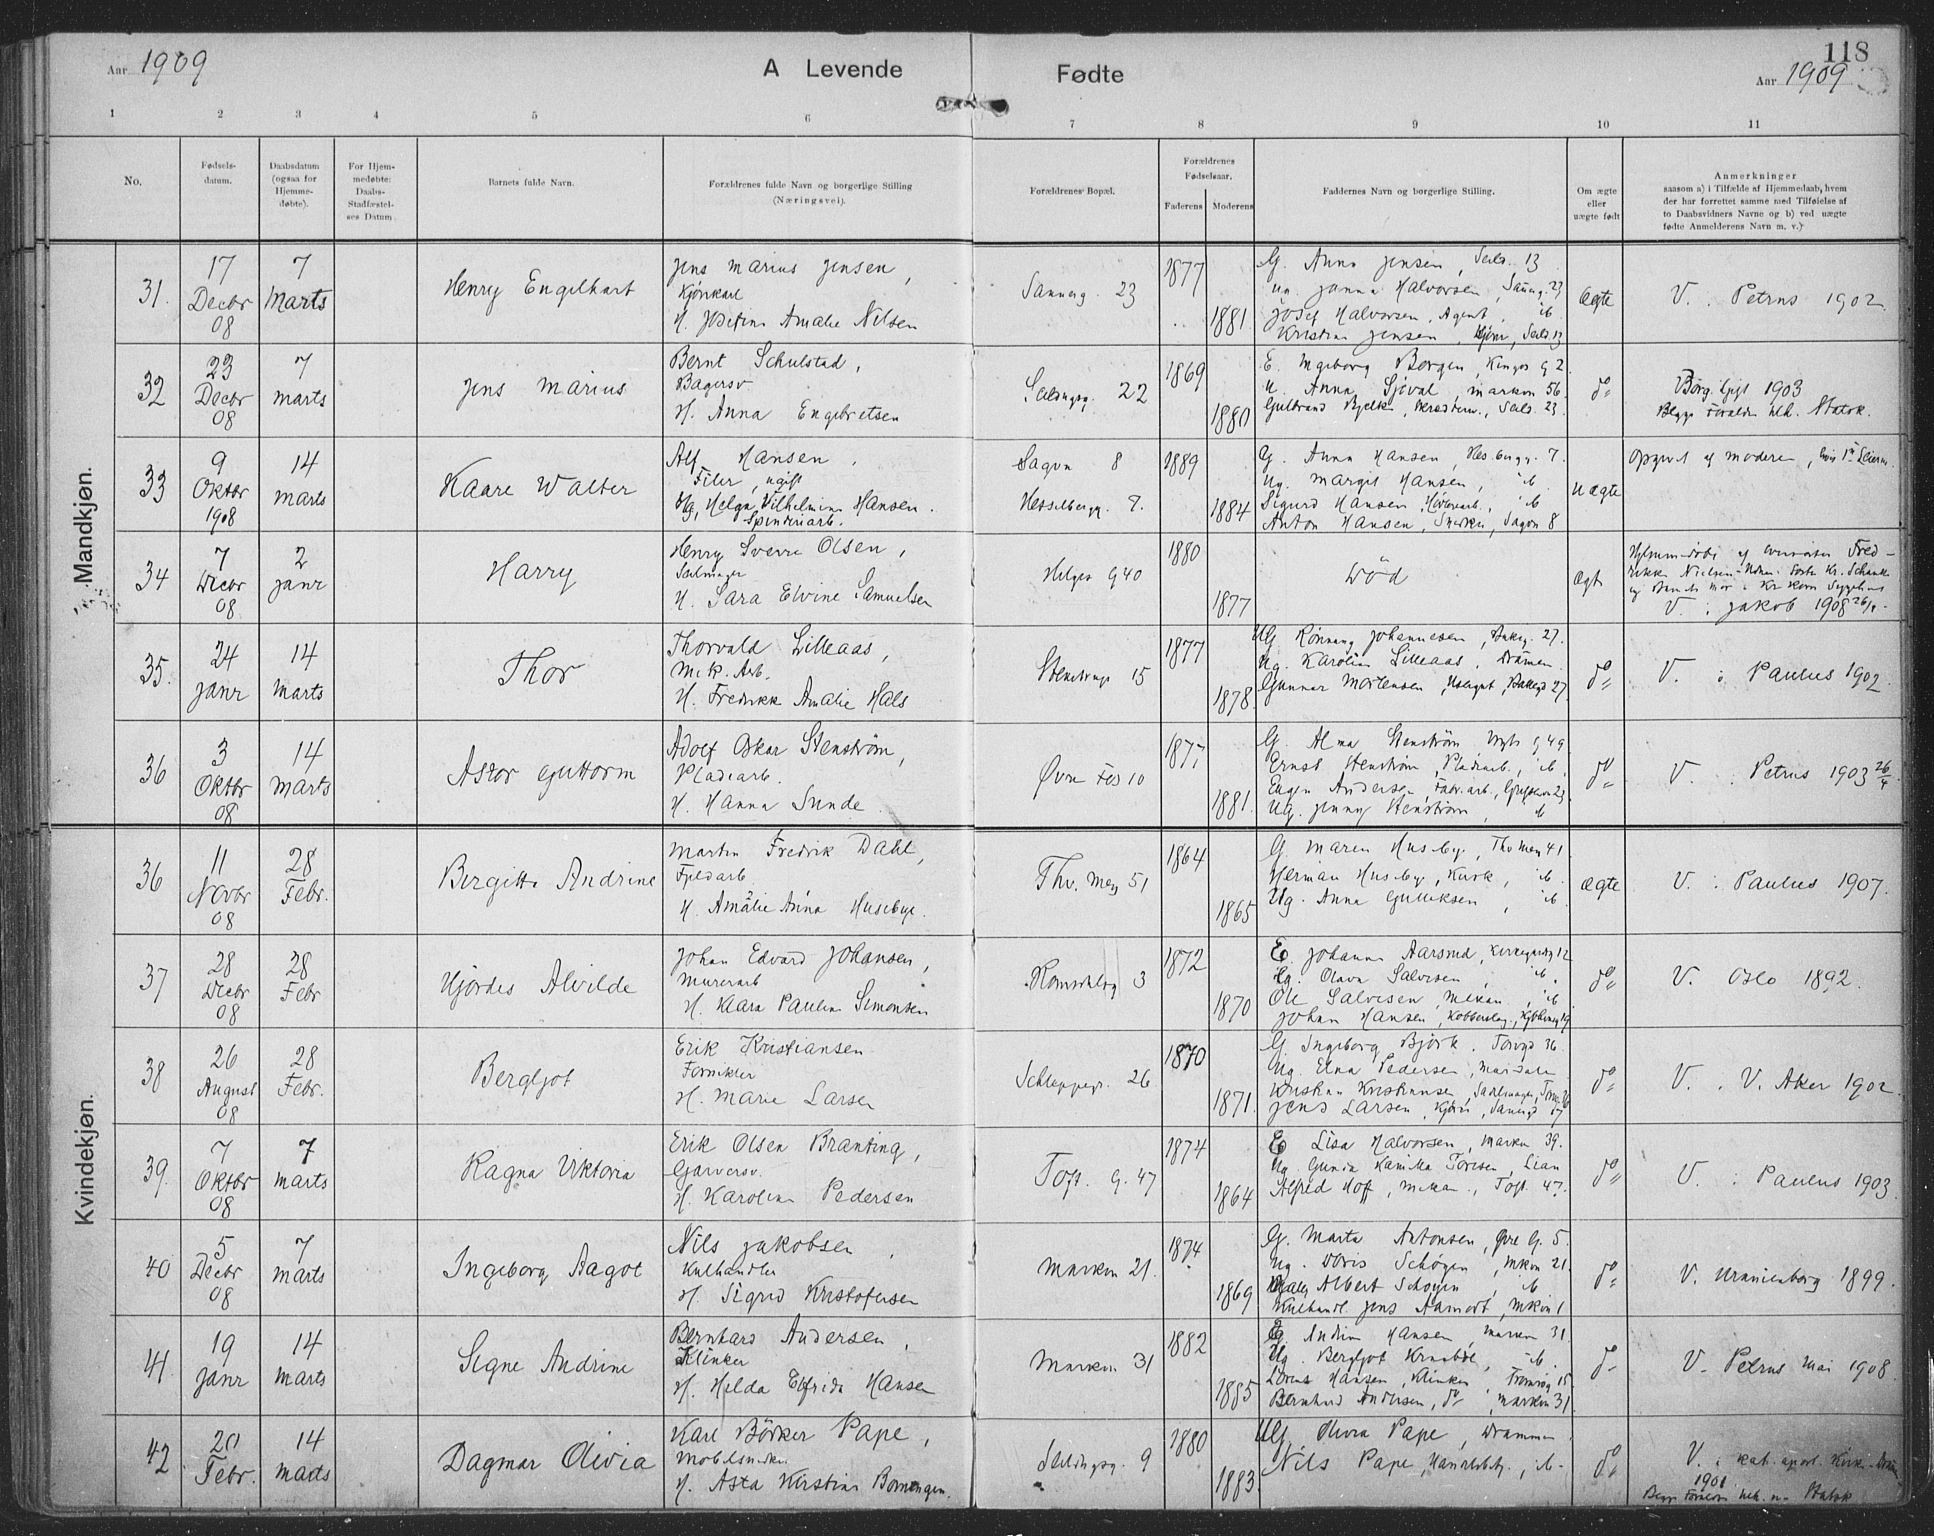 118
Aar 1909
A Levende Fødte
Aar 1909
1 2 3 4 5 6 7 8 9 10 11
No.
Fødsels-
datum.
Daabsdatum
(ogsaa for
Hjemme-
døbte).
For Hjem-
medøbte:
Daabs-
Stadfæstel-
ses Datum.
Barnets fulde Navn.
Forældrenes fulde Navn og borgerlige Stilling
(Næringsvei).
Forældrenes Bopæl.
Forældrenes
Fødselsaar.
Faderens Moderens
Faddernes Navn og borgerlige Stilling.
Om ægte
eller
uægte født
Anmerkninger
saasom a) i Tilfælde af Hjemmedaab, hvem
der har forrettet samme med Tilføielse af
to Daabsvidners Navne og b) ved uægte
fødte Anmelderens Navn m. v.)
Mandkjøn.
31.
17
Decbr
08
7
Marts
Henry Engelhart
Jens Marius Jensen,
Kjørekarl
H. Josefine Amalie Nilsen
Sannerg. 23
1877
1881.
G. Anna Jensen, Seilds. 13
Ug. Janna Halvorsen, Sannerg. 23
Josef Halvorsen, Agent, ib
Kristian Jensen, Kjører, Seilds. 13
ægte
V. Petrus 1902
32
23
Decbr
08
7
marts
Jens Marius
Bernt Schulstad,
Bagersv
H. Anna Engebretsen
22
1869
1880
E. Ingeborg Borgen, Kingos g 2.
U. Anna Sjøval, marken 56.
Gulbrand Bjelke, Skrædderm., Seilds. 23.
do
Borg. Gift 1903
33
9
Oktbr
1908
14
marts
Kaare Walter
Alf Hansen,
Filer, ugift
Ug. Helga Vilhelmine Hansen.
Spinderiarb.
Sagvn 8
Hesselbergg. 7.
1889
1884
G. Anna Hansen, Hesselbergg. 7.
Ug. Margit Hansen, ib
Sigurd Hansen, ib
Anton Hansen, Snedker, Sagvn 8
uægte
Opgivet af moderen,
34
7
Decbr
08
2
janr
Harry
Henry Sverre Olsen,
Seilmager
H. Sara Elvine Samuelsen
Helges g 40
1880
1877
Død
ægte
V. Jakob 1908
35.
24
janr
14
marts
Thor
Thorvald Lilleaas,
Mek. Arb.
H. Fredrikke Amalie Hals
Stenstrups 15
1877
1878.
Ug. Rønnaug Johannesen, 27.
Ug. Karoline Lilleaas, Drammen
Gunnar Mortensen, 27.
do
V. i Paulus 1902.
36
3
Oktbr
08
14
Marts
Astor Guttorm
Adolf Oskar Stenstrøm,
Pladearb.
H. Hanna Sunde.
Øvre Fos 10
1877
1881.
G. Alma Stenstrøm, g 49
Ernst Stenstrøm, Pladearb., ib
Eugen Andersen, Fabr.arb.,
Ug. Jenny Stenstrøm, ib
do
V. Petrus 1903 26/4
Kvindekjøn.
36
11
Novbr
08
28
Febr.
Bergitte Andrine
Martin Fredrik Dahl,
H. Amalie Anna Husebye.
Thv. Meyg 51
1864
1865
G. Maren Huseby, Thv Meyg 41
Herman Huseby, ib.
Ug. Anna Gulliksen, ib.
ægte
V. i Paulus 1907.
37
28
Decbr
08
28
Febr
Hjørdes Alvilde
Johan Edvard Johansen,
Murerarb
H. Klara Pauline Simonsen
3
1872
1870
E. Johanne Aarsrud, Kirkegaardsg 12
Ug. Olava Salvesen, ib.
Ole Salvesen, Mekan, ib
Johan Hansen, Kobberslag.,
do
V. Oslo 1892.
38
26
August
08
28
Febr.
Bergljot
Erik Kristiansen
Fornikler
H. Marie Larsen
Schleppegr. 26
1870
1871.
G. Ingeborg Bjørk, Torvgd 36.
Ug. Elna Pedersen,
Kristian Kristiansen, Sadelmager,
Jens Larsen, 17
do
V. V. Aker 1902.
39.
7
Oktbr
08
7
marts
Ragna Viktoria
Erik Olsen Branting,
Garversv.
H. Karoline Pedersen
Toft. g. 47
1874
1864
E. Lisa Halvorsen, Marken 39.
Ug. Gunda Kamilla Toresen, Lian
Alfred Hoff, Mekan., Toft. 47.
do
V. i Paulus 1903.
40
5
Decbr
08
7
marts
Ingeborg Aagot
Nils Jakobsen,
Kulhandler
H. Sigrid Kristofersen
Marken 21.
1874
1869
G. Marta Antonsen, Øvre G. 5.
Ug. Doris Schøgen, Mkn 21.
Maler Albert Schøgen, ib
Kulhandl. Jens Aamodt, Mken 1
do
V. Uranienborg 1899.
41.
19
janr
14
marts
Signe Andrine
Bernhard Andersen,
Klinker
H. Hilda Elfrida Hansen
Marken 31
1882
1885
G. Andrine Hansen, Marken 31.
Ug. Bergljot Knabøl, ib.
Hansen, Klinker, Tromsøg 15
Bernhard Andersen, do, Marken 31
do
V. Petrus Mai 1908.
42
20
Febr.
14
marts
Dagmar Olivia
Karl Börker Pape,
Møbelsnedker
H. Asta Kirstine Bomengen.
9
1880
1883.
Ug. Olivia Pape, Drammen
Nils Pape, ib.
do
V. i kat. apost. Kirke
1901